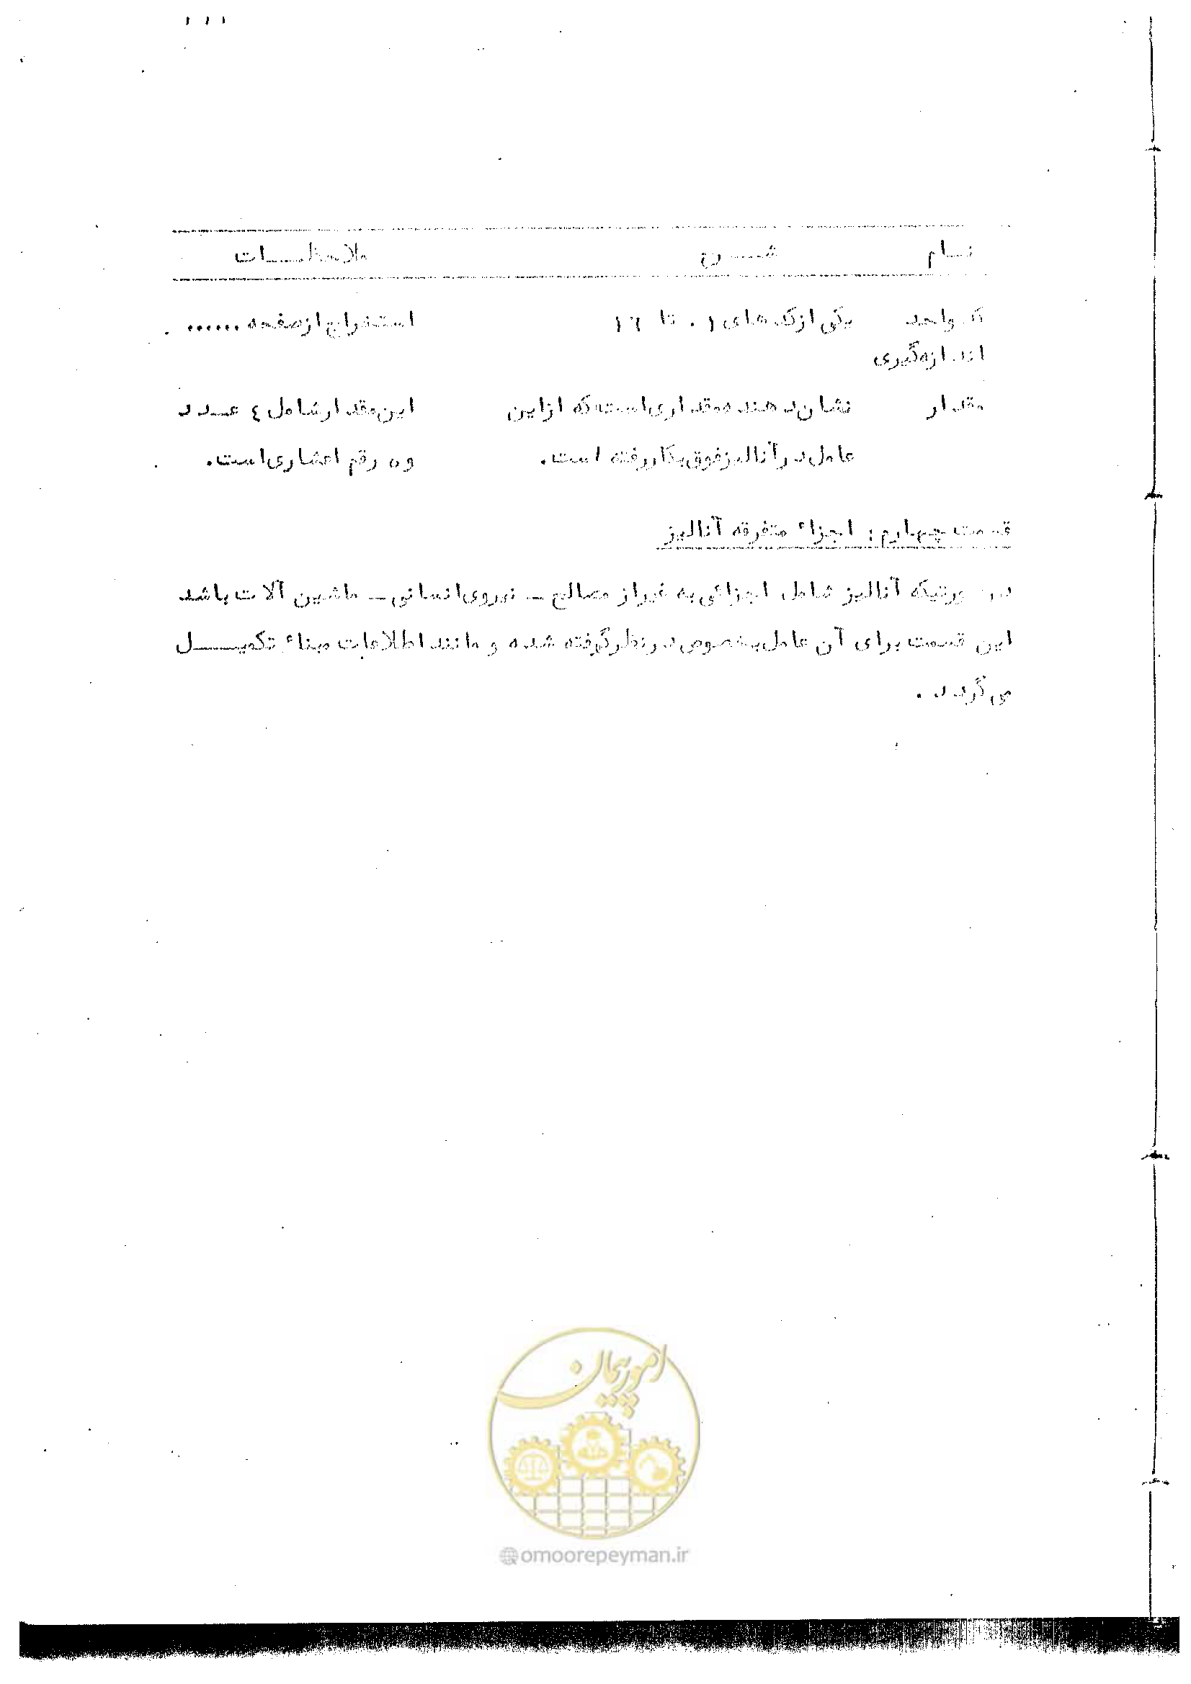 ۱۱۱
نام شرح ملاحظات
کد واحد یکی از کدهای ۰۱ تا ۱۶ استخراج از صفحه ...... .
اندازه‌گیری
مقدار نشان‌دهنده مقداری است که از این این مقدار شامل ٤ عدد
عامل در آنالیز فوق بکار رفته است. و ۵ رقم اعشاری است.
قسمت چهارم: اجزاء متفرقه آنالیز
در صورتیکه آنالیز شامل اجزائی به غیر از مصالح ـ نیروی انسانی ـ ماشین آلات باشد
این قسمت برای آن عامل بخصوص در نظر گرفته شده و مانند اطلاعات مبناء تکمیل
می گردد.
امور پیمان
@omoorepeyman.ir